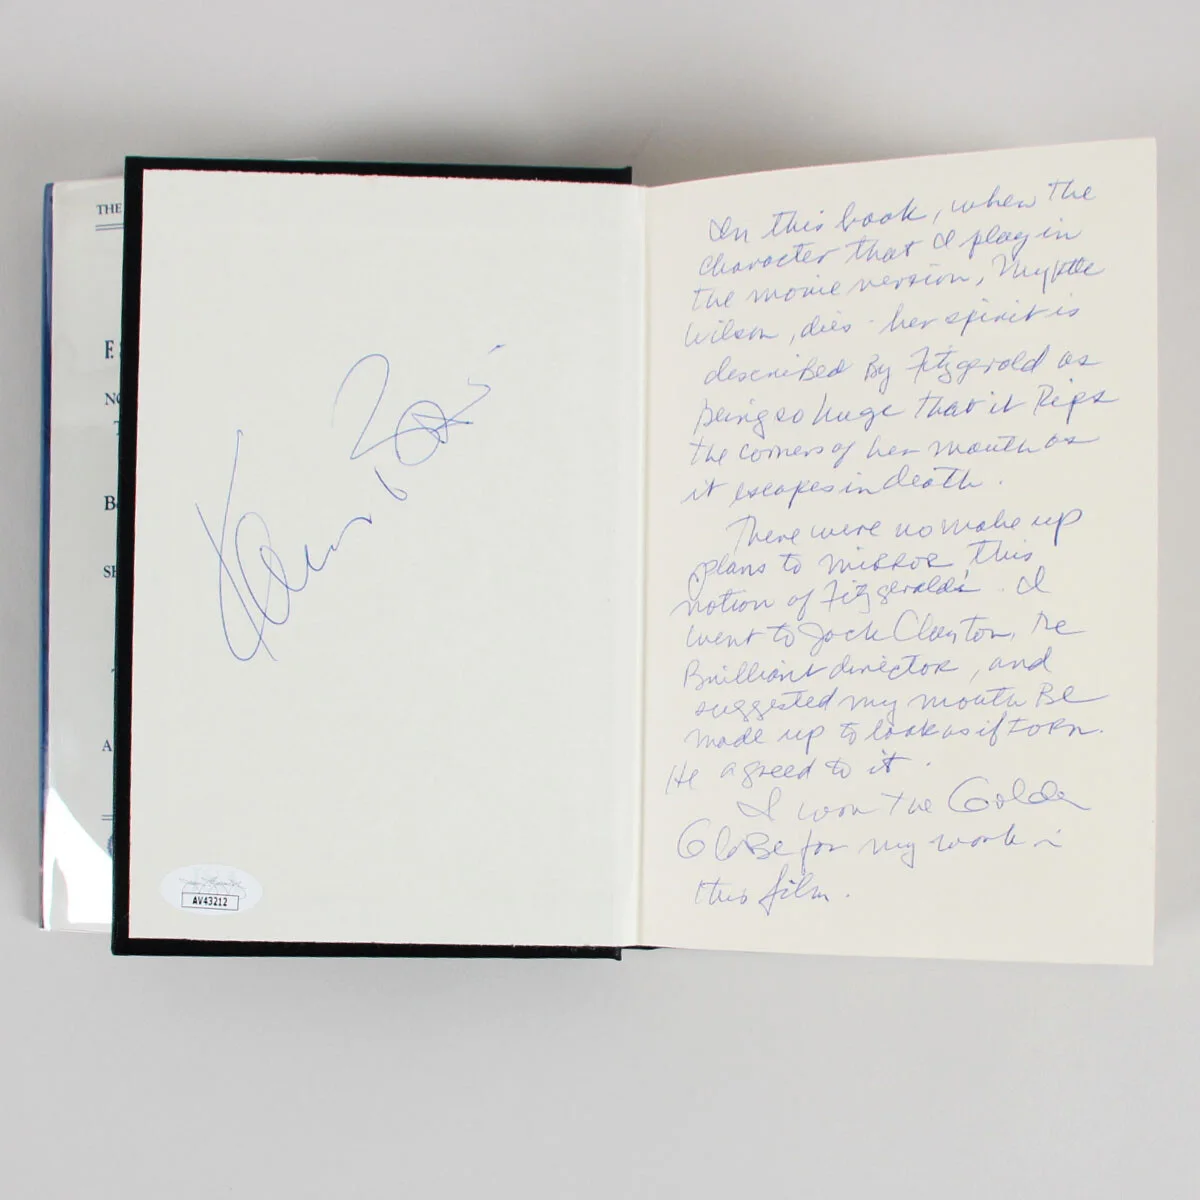 THE
F. S
NO
T
B
SE
A
Karen Black
AV43212
In this book, when the
character that I play in
the movie version, Myrtle
Wilson, dies - her spirit is
described By Fitzgerald as
being so huge that it Rips
the corners of her mouth as
it escapes in death.
There were no make up
plans to MIRROR this
notion of Fitzgerald's. I
went to Jack Clayton, the
Brilliant director, and
suggested my mouth Be
made up to look as if torn.
He agreed to it.
I won the Golden
Globe for my work in
this film.